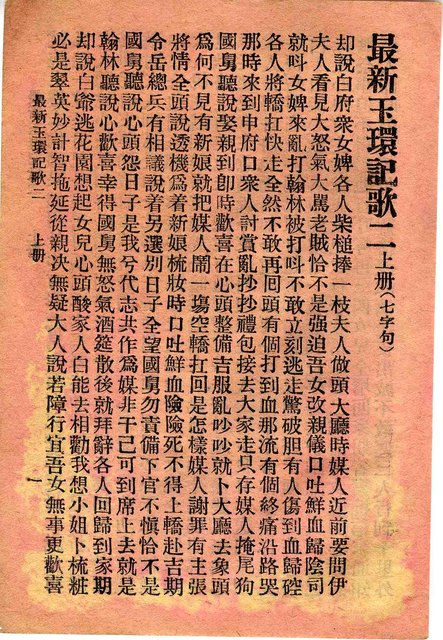 最新玉環記歌二上册(七字句)
却說白府衆女婢各人柴槌捧一枝夫人做頭大廳時媒人近前要問伊
夫人看見大怒氣大罵老賊恰不是强迫吾女改親儀口吐鮮血歸陰司
就叫女婢來亂打翰林被打叫不敢立刻逃走驚破胆有人傷到血歸硿
各人將轎扛快走全然不敢再囘頭有個打到血那流有個終痛沿路哭
那時來到申府口衆人討賞亂抄抄禮包接去大家走只存媒人掩尾狗
國舅聽說娶親到卽時歡喜在心頭整備吉服亂吵吵就卜大廳去象頭
爲何不見有新娘就把媒人鬧一塲空轎扛囘是怎樣媒人謝罪有主張
將情全頭說透機爲着新娘梳妝時口吐鮮血險險死不得上轎赴吉期
令岳總兵有相議說着另選別日子全望國舅勿責備下官不愼恰不是
國舅聽說心頭怨日子是我兮代志共作爲媒非干己可到席上去就是
翰林聽說心歡喜幸得國舅無怒氣酒筵散後就拜辭各人回歸到家期
却說白爺逃花園想起女兒心頭酸家人白能去相勸我想小姐卜梳粧
必是翠英妙計智拖延從親决無疑大人說若障行宜吾女無事更歡喜
最新玉環記歌二 上册 一